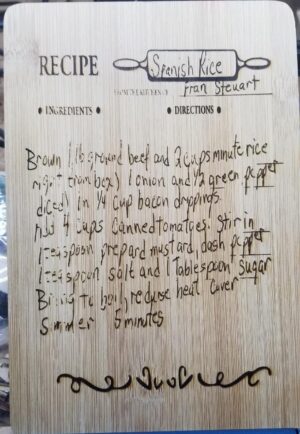 RECIPE
Spanish Rice
FROM THE KITCHEN OF
Fran Stewart
• INGREDIENTS •
• DIRECTIONS •
Brown 1 lb ground beef and 2 cups minute rice
right from box) 1 onion and 1/2 green pepper
diced) in 1/4 cup bacon drippings.
Add 4 cups canned tomatoes. Stir in
1 teaspoon prepard mustard, dash pepper
1 teaspoon salt and 1 Tablespoon sugar
Bring to boil, reduse heat cover
Simmer 5 minutes